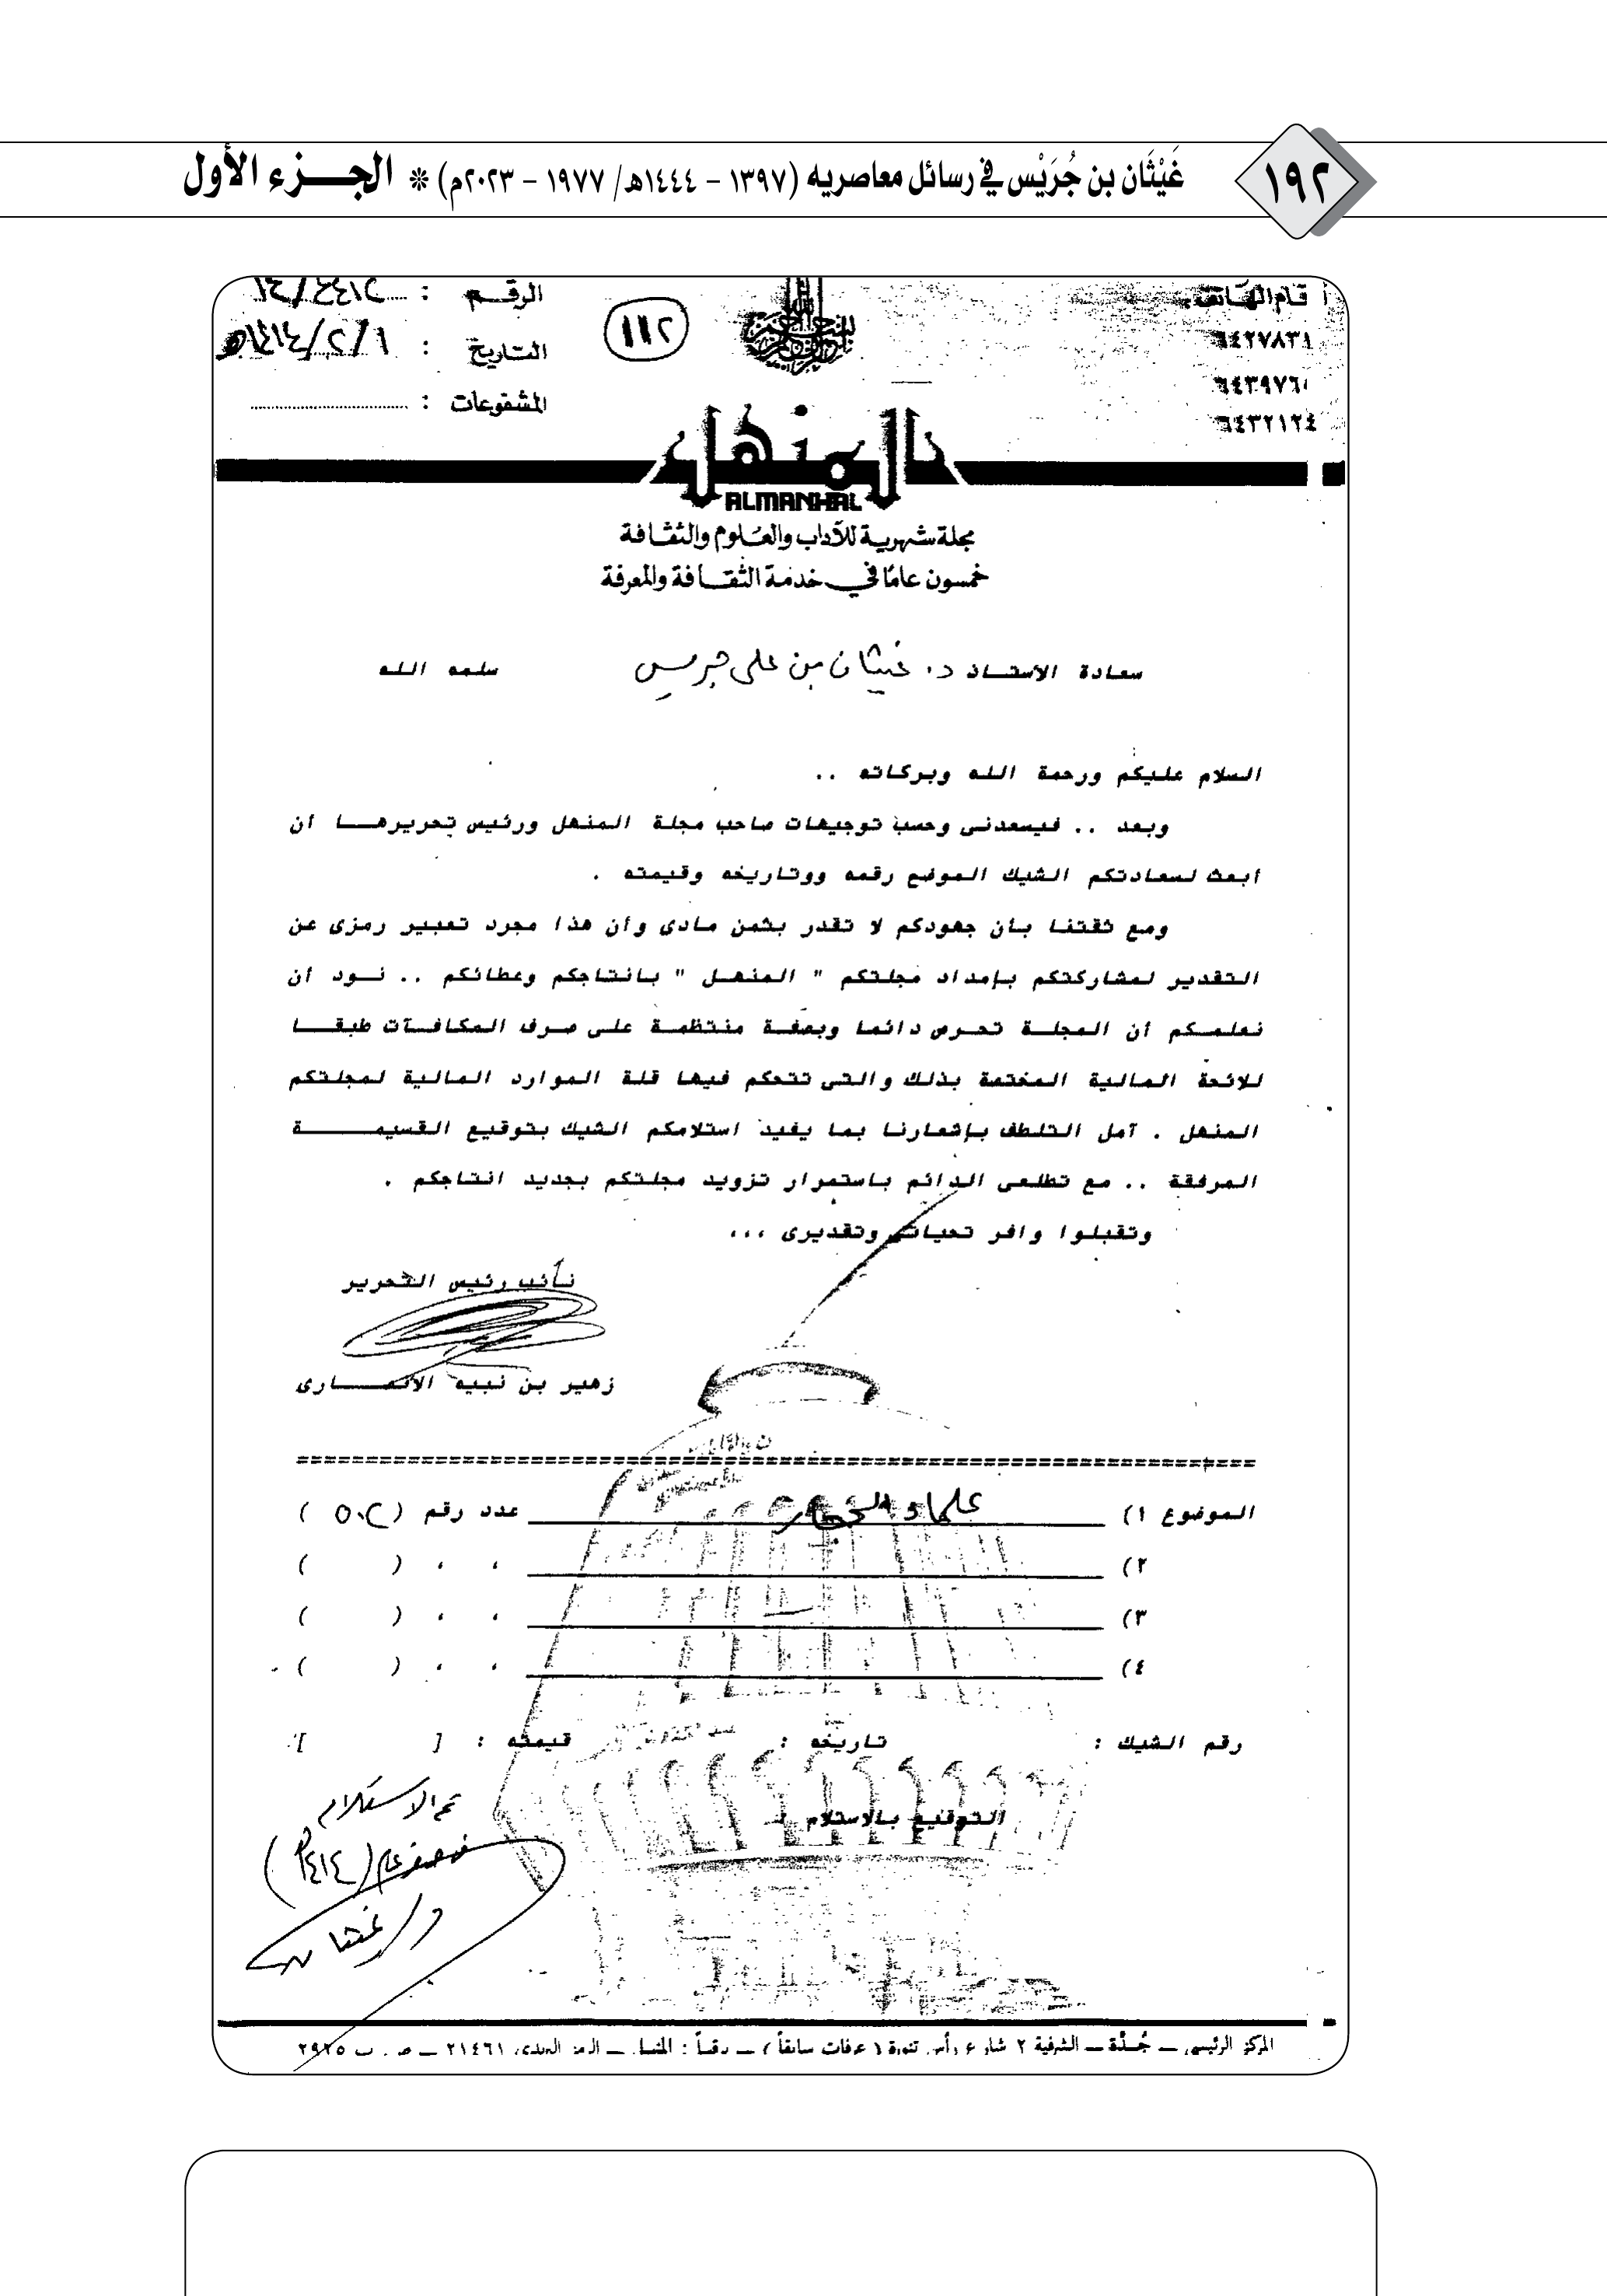 ١٩٢
غَيْثَان بن جُرَيْس في رسائل معاصريه (١٣٩٧ - ١٤٤٤هـ/ ١٩٧٧ - ٢٠٢٣م) * الجزء الأول
الرقم :
١١٢
٦٤٢٧٨٣١
التاريخ : ١/٢/١٤١٤هـ
٦٤٣٩٧٦٠
المشفوعات :
٦٤٣٢١٢٤
المنهل
ALMANHAL
مجلة شهرية للآداب والعلوم والثقافة
خمسون عامًا في خدمة الثقافة والمعرفة
سعادة الاستاذ د. غيثان بن علي جريس سلمه الله
السلام عليكم ورحمة الله وبركاته ..
وبعد .. فيسعدنى وحسب توجيهات صاحب مجلة المنهل ورئيس تحريرها أن
أبعث لسعادتكم الشيك الموضح رقمه ووتاريخه وقيمته .
ومع ثقتنا بأن جهودكم لا تقدر بثمن مادى وأن هذا مجرد تعبير رمزى عن
التقدير لمشاركتكم بإمداد مجلتكم " المنهل " بانتاجكم وعطائكم .. نود أن
نعلمكم أن المجلة تحرص دائما وبصفة منتظمة على صرف المكافآت طبقا
للائحة المالية المختصة بذلك والتى تتحكم فيها قلة الموارد المالية لمجلتكم
المنهل . آمل التلطف بإشعارنا بما يفيد استلامكم الشيك بتوقيع القسيمة
المرفقة .. مع تطلعى الدائم باستمرار تزويد مجلتكم بجديد انتاجكم .
وتقبلوا وافر تحياتى وتقديرى ...
نائب رئيس التحرير
زهير بن نبيه الانصارى
الموضوع ١) علماء الحجاز عدد رقم (٥٠٢)
٢) ، ، ( )
٣) ، ، ( )
٤) ، ، ( )
رقم الشيك : تاريخه : قيمته : [ ]
التوقيع بالاستلام :
تم الاستلام
في صفر عام (١٤١٤هـ)
د/ غيثان
المركز الرئيسي — جُدّة — الشرفية ٢ شارع — المنهل — الرمز البريدي ٢١٤٦١ — ص . ب ٢٩٢٥